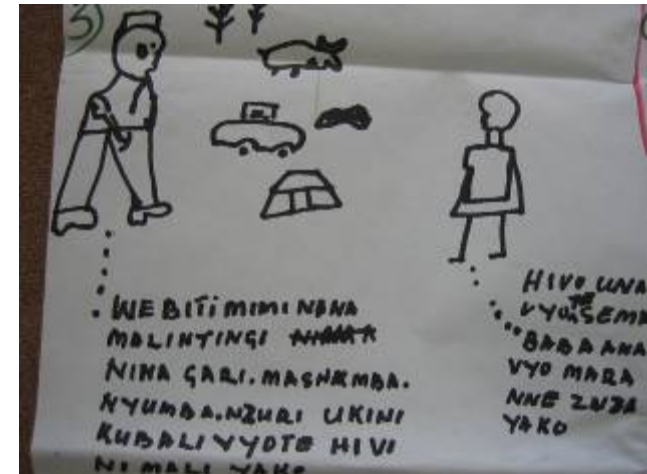 3
WE BITI MIMI NBNA
MALINTINGI
NINA GARI. MASHAMBA.
NYUMBA. NZURI UKINI
KUBALI VYOTE HIVI
NI MALI YAKO
HIVO UNA
TE
VYOISEMA
BABA ANA
VYO MARA
NNE ZUDA
YAKO